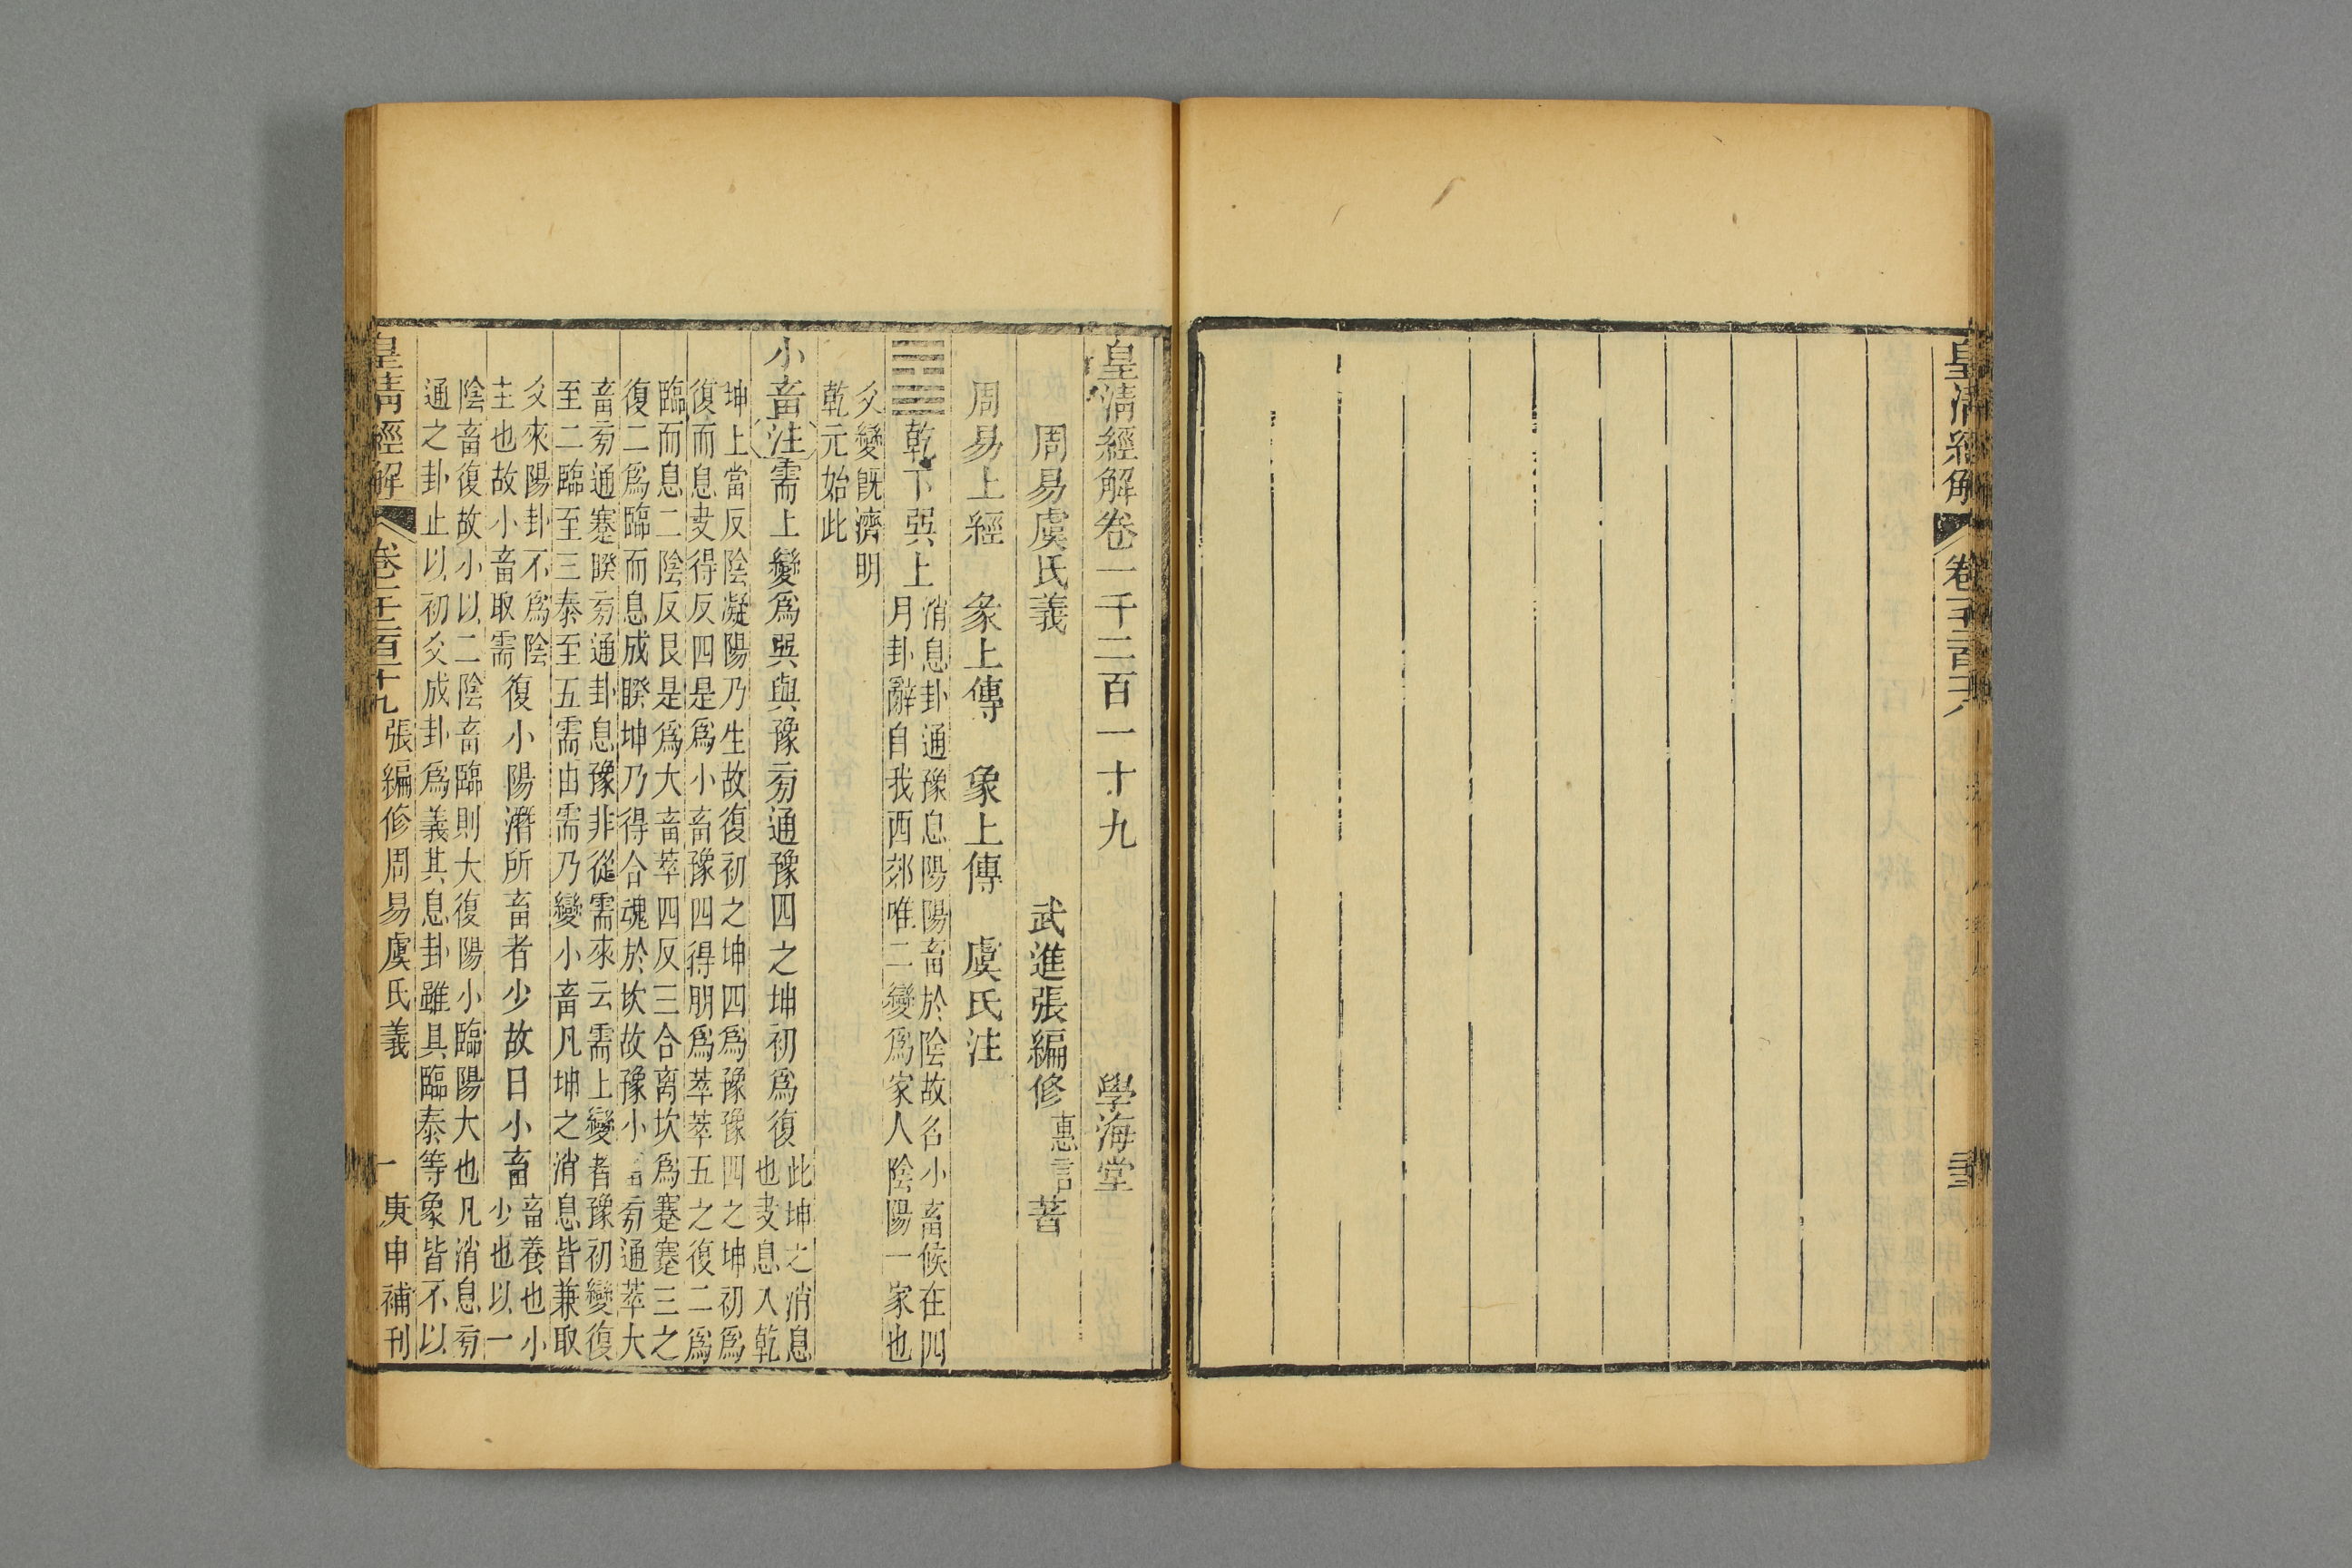 皇清經解
皇清經解卷一千二百一十九 學海堂
周易虞氏義 武進張編修惠言著
周易上經 彖上傳 象上傳 虞氏注
䷈乾下巽上
消息卦通豫息陽陽畜於陰故名小畜候在四
月卦辭自我西郊唯二變爲家人陰陽一家也
爻變旣濟明
乾元始此
小畜注需上變爲巽與豫旁通豫四之坤初爲復
此坤之消息
也夬息入乾
坤上當反陰凝陽乃生故復初之坤四爲豫豫四之坤初爲
復而息夬得反四是爲小畜豫四得朋爲萃萃五之復二爲
臨而息二陰反艮是爲大畜萃四反三合离坎爲蹇蹇三之
復二爲臨而息成睽坤乃得合魂於坎故豫小畜旁通萃大
畜旁通蹇睽旁通卦息豫非從需來云需上變者豫初變復
至二臨至三泰至五需由需乃變小畜凡坤之消息皆兼取
爻來陽卦不爲陰
主也故小畜取需
復小陽潛所畜者少故曰小畜
畜養也小
少也以一
陰畜復故小以二陰畜臨則大復陽小臨陽大也凡消息旁
通之卦止以初爻成卦爲義其息卦雖具臨泰等象皆不以
皇清經解 卷千二百十九 張編修周易虞氏義 一 庚申補刊